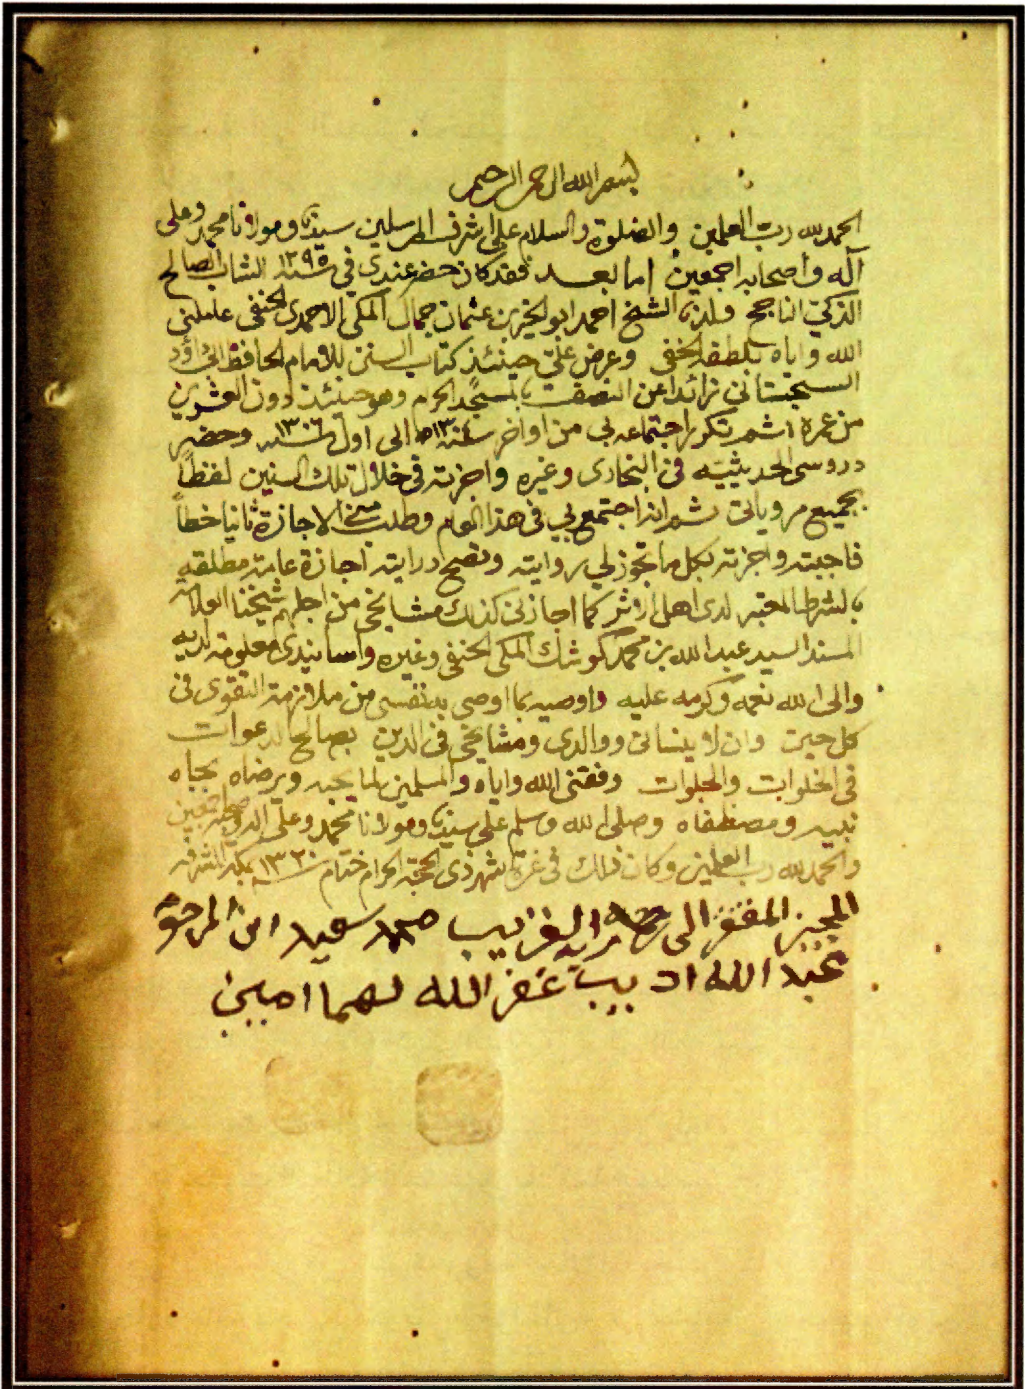 بسم الله الرحمن الرحيم
الحمد لله رب العلمين والصلوة والسلام على اشرف المرسلين سيدنا ومولانا محمد وعلى
آله وأصحابه اجمعين اما بعد فقد كان حضر عندي في سنة ١٢٩٥ الشاب الصالح
الذكي الناجح ولدنا الشيخ احمد ابو الخير بن عثمان جمال المكي الاحمدي الحنفي عاملني
الله واياه بلطفه الخفي وعرض علي حينئذ كتاب السنن للامام الحافظ ابي داؤد
السجستاني زائدا عن النصف بالمسجد الحرام وهو حينئذ دون العشرين
من عمره ثم تكرر اجتماعه بي من اواخر سنة الى اول ١٣٠٦ وحضر
دروسي الحديثيه في البخاري وغيره واجزته في خلال تلك السنين لفظاً
بجميع مروياتي ثم انه اجتمع بي في هذا العام وطلب مني الاجازة ثانيا خطاً
فاجبته واجزته بكل ما تجوز لي روايته وتصح درايته اجازة عامة مطلقه
بالشرط المعتبر لدى اهل الاثر كما اجازني كذلك مشايخي من اجلهم شيخنا العلامة
المسند السيد عبد الله بن محمد كوشك المكي الحنفي وغيره واسانيدي معلومة لديه
والى الله نعمه وكرمه عليه واوصيه بما اوصي به نفسي من ملازمة التقوى في
كل حين وان لا ينساني ووالدي ومشايخي في الدين بصالح الدعوات
في الخلوات والجلوات وفقني الله واياه والمسلمين لما يحبه ويرضاه بجاه
نبيه ومصطفاه وصلى الله وسلم على سيدنا ومولانا محمد وعلى اله وصحبه اجمعين
والحمد لله رب العلمين وكان ذلك في غرة شهر ذي الحجة الحرام ختام ١٣٢٠ بمكة المشرفه
المجيز المفتقر الى رحمة ربه محمد سعيد ابن المرحوم
عبد الله اديب غفر الله لهما امين